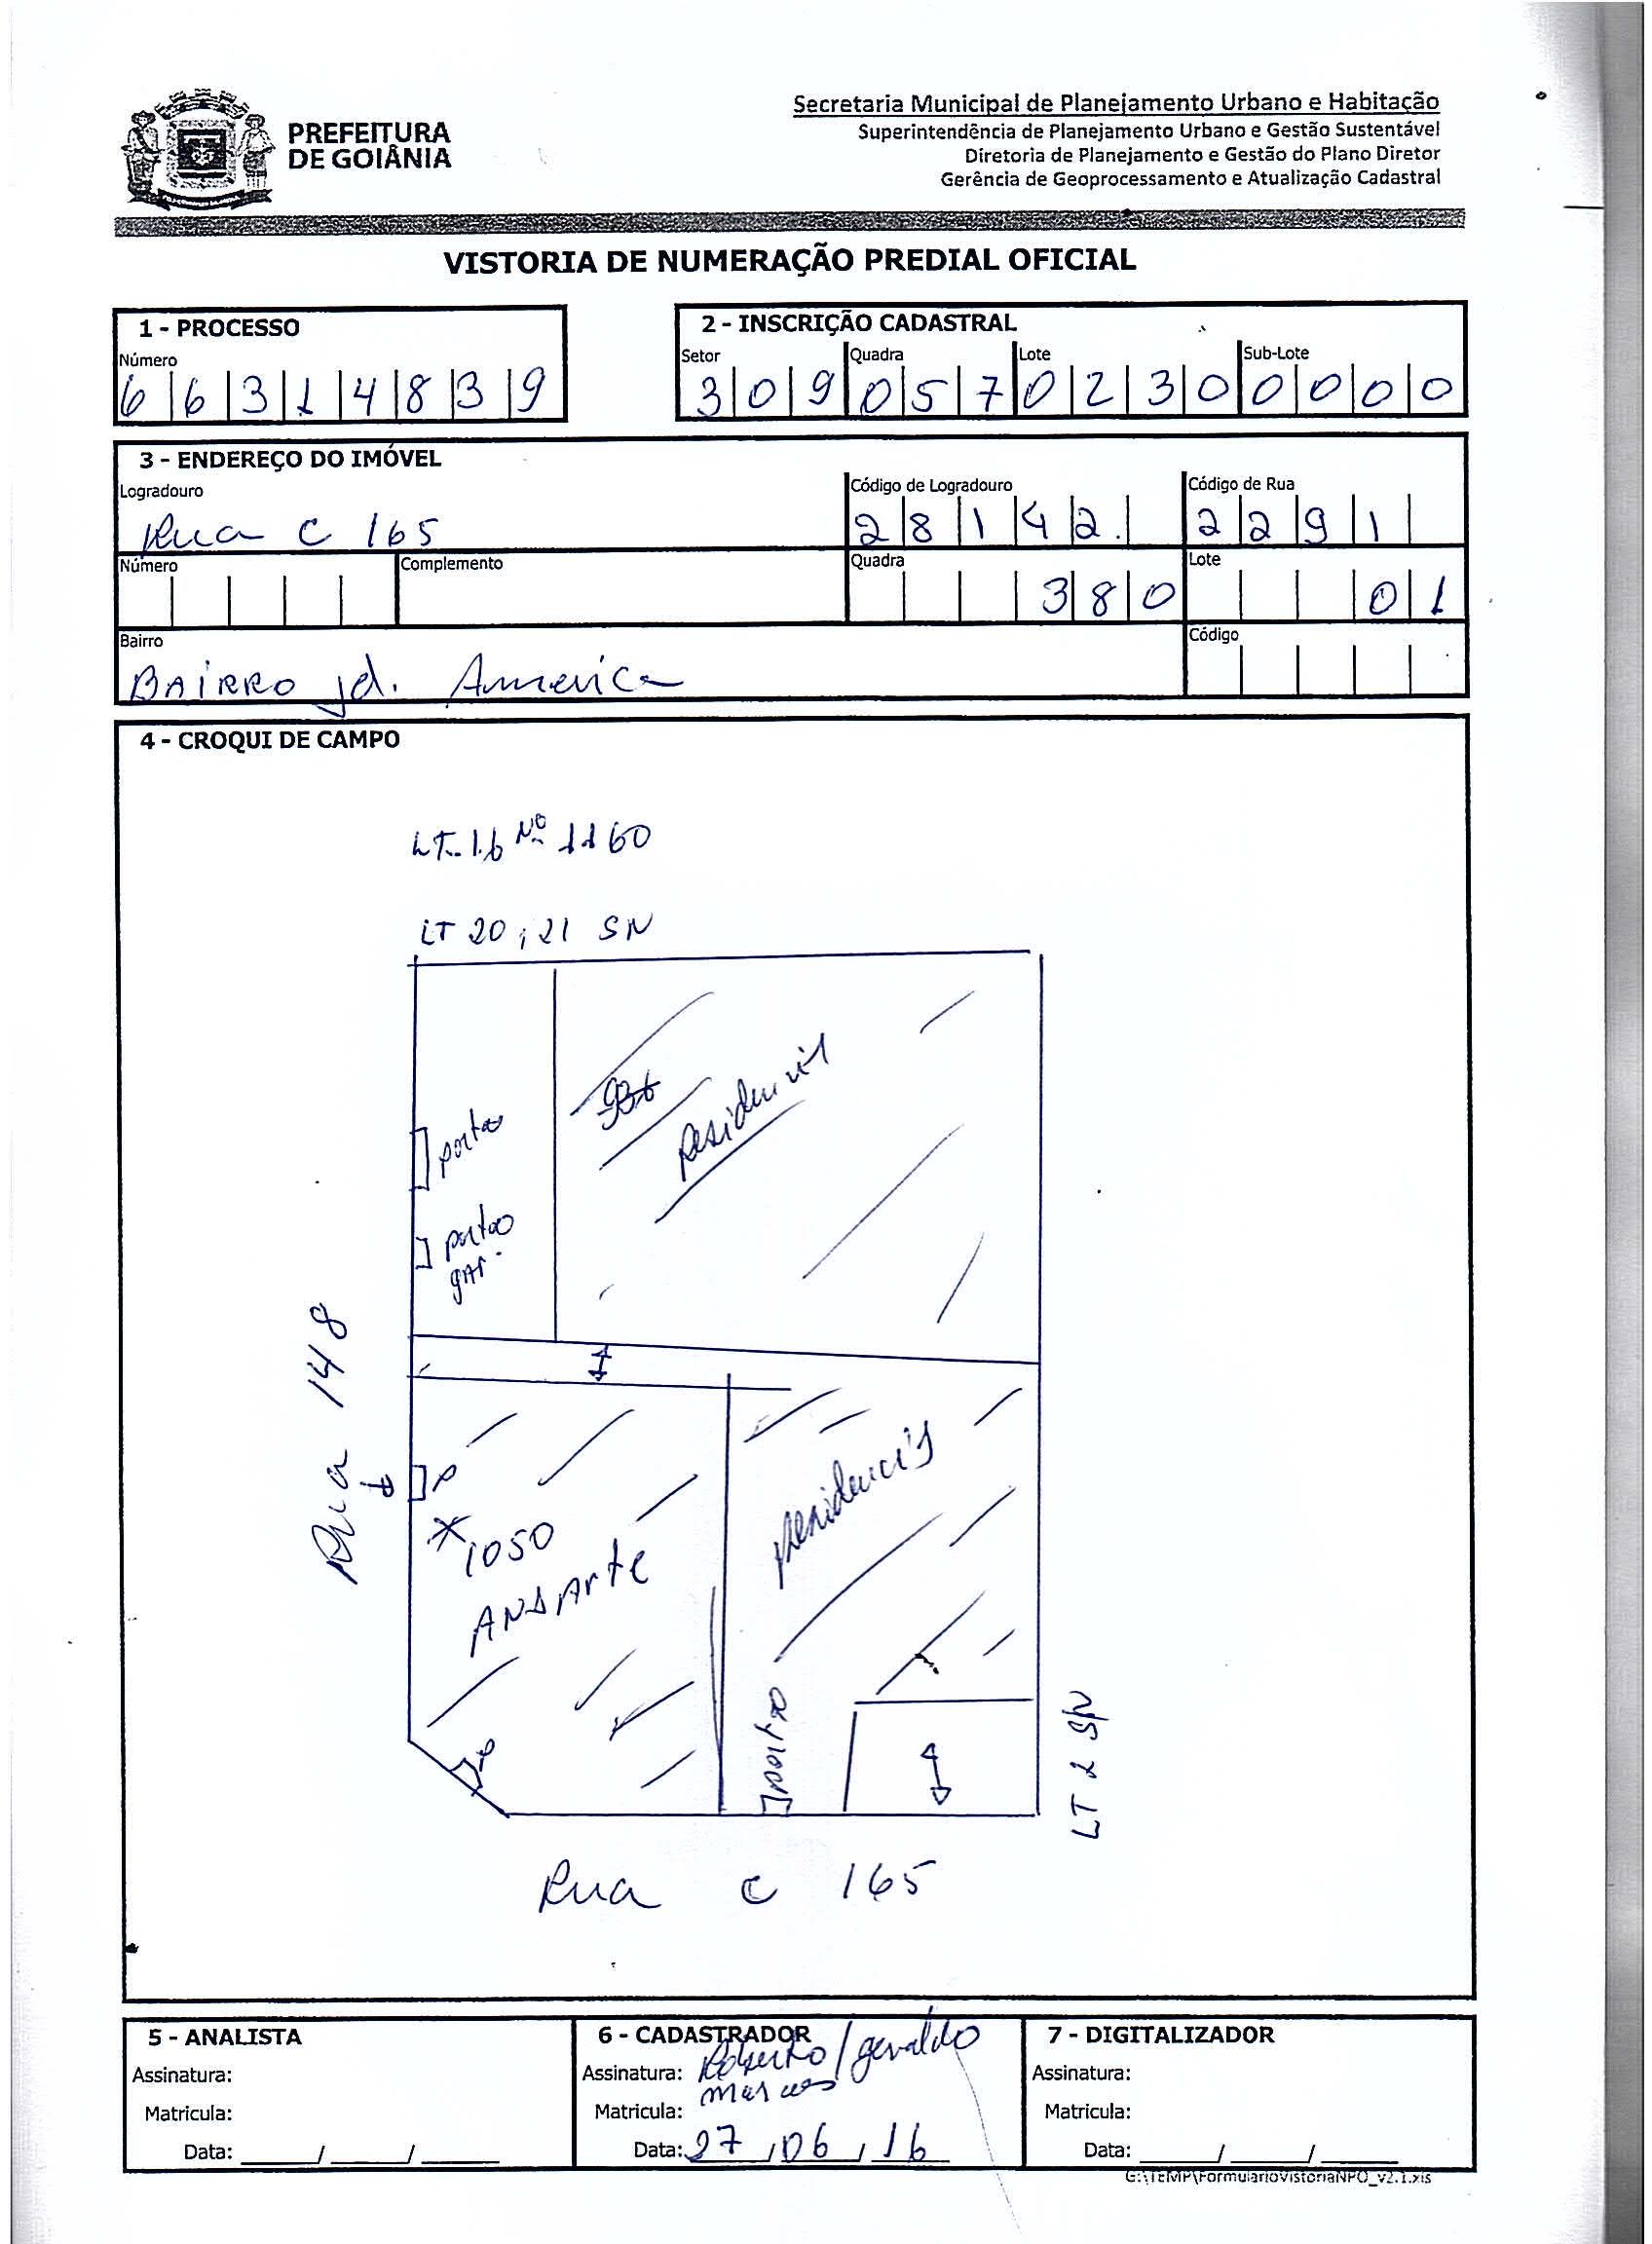 PREFEITURA
DE GOIÂNIA
Secretaria Municipal de Planejamento Urbano e Habitação
Superintendência de Planejamento Urbano e Gestão Sustentável
Diretoria de Planejamento e Gestão do Plano Diretor
Gerência de Geoprocessamento e Atualização Cadastral
VISTORIA DE NUMERAÇÃO PREDIAL OFICIAL
1 - PROCESSO
Número
6 6 3 1 4 8 3 9
2 - INSCRIÇÃO CADASTRAL
Setor Quadra Lote Sub-Lote
3 0 9 0 5 7 0 2 3 0 0 0 0 0
3 - ENDEREÇO DO IMÓVEL
Logradouro Código de Logradouro Código de Rua
Rua C 165 2 8 1 4 2 2 2 9 1
Número Complemento Quadra Lote
3 8 0 0 1
Bairro Código
BAIRRO jd. America
4 - CROQUI DE CAMPO
LT. 16 Nº 1160
LT 20 , 21 SN
portao
Residencia
portao
gar.
Rua 148
P
1050
residencia
portao
LT 2 S/N
Rua C 165
5 - ANALISTA
Assinatura:
Matricula:
Data: / /
6 - CADASTRADOR
Assinatura: Roberto / geraldo
marcos
Matricula:
Data: 27 / 06 / 16
7 - DIGITALIZADOR
Assinatura:
Matricula:
Data: / /
G:\TEMP\FormularioVistoriaNPO_v2.1.xls